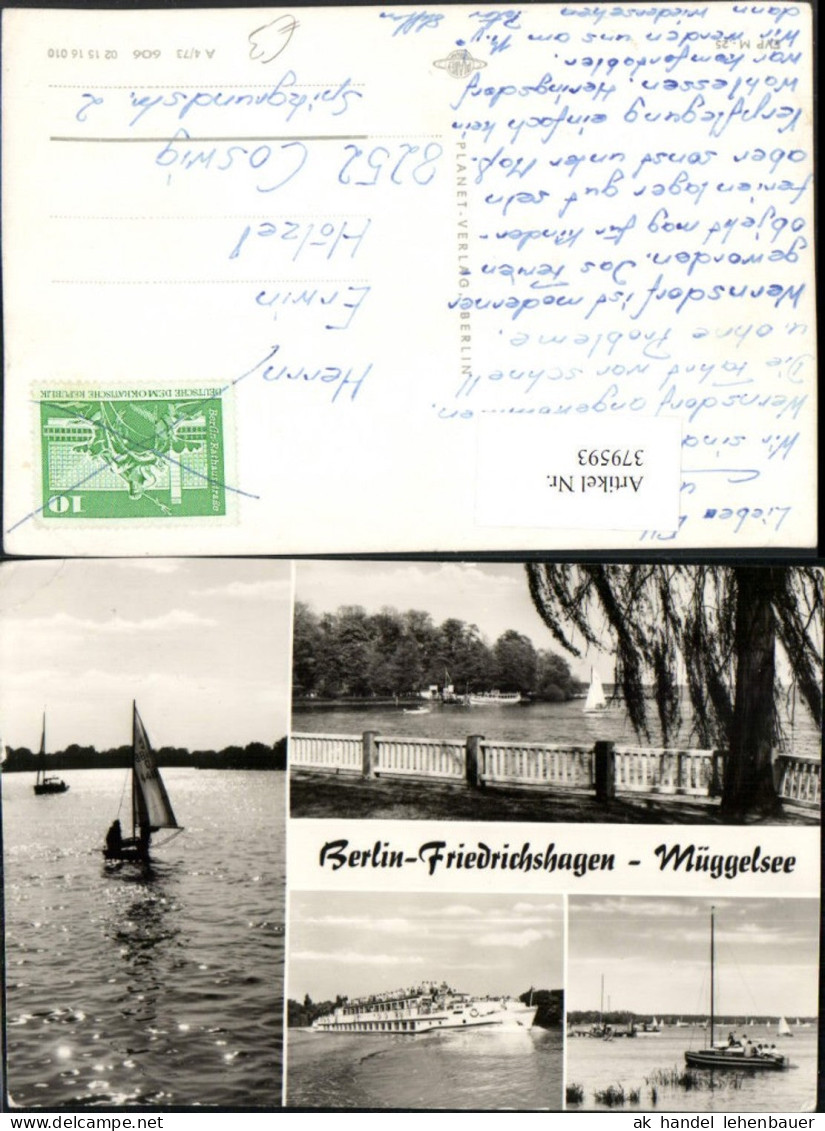 Lieber
Wir sind
Wernsdorf angekommen.
Die Fahrt war schnell
u. ohne Probleme.
Wernsdorf ist moderner
geworden. Das Ferien-
objekt mag für Kinder-
ferienlager gut sein
aber sonst unter Maß.
Verpflegung einfach kein
Wohlessen. Heringsdorf
war komfortabler.
Wir werden uns am
dann wiedersehen
EVP M -.25
PLANET-VERLAG BERLIN
DEUTSCHE DEMOKRATISCHE REPUBLIK
Berlin·Rathausstraße
10
Herrn
Erwin
Hölzel
8252 Coswig
Spitzgrundstr. 2
A 4/73 606 02 15 16 010
€3
Artikel Nr.
379593
Berlin-Friedrichshagen - Müggelsee
ak handel lehenbauer